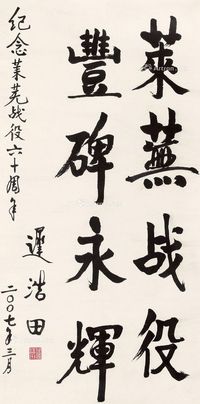 萊蕪战役
豐碑永輝
纪念莱芜战役六十周年
遲浩田
二〇〇七年三月